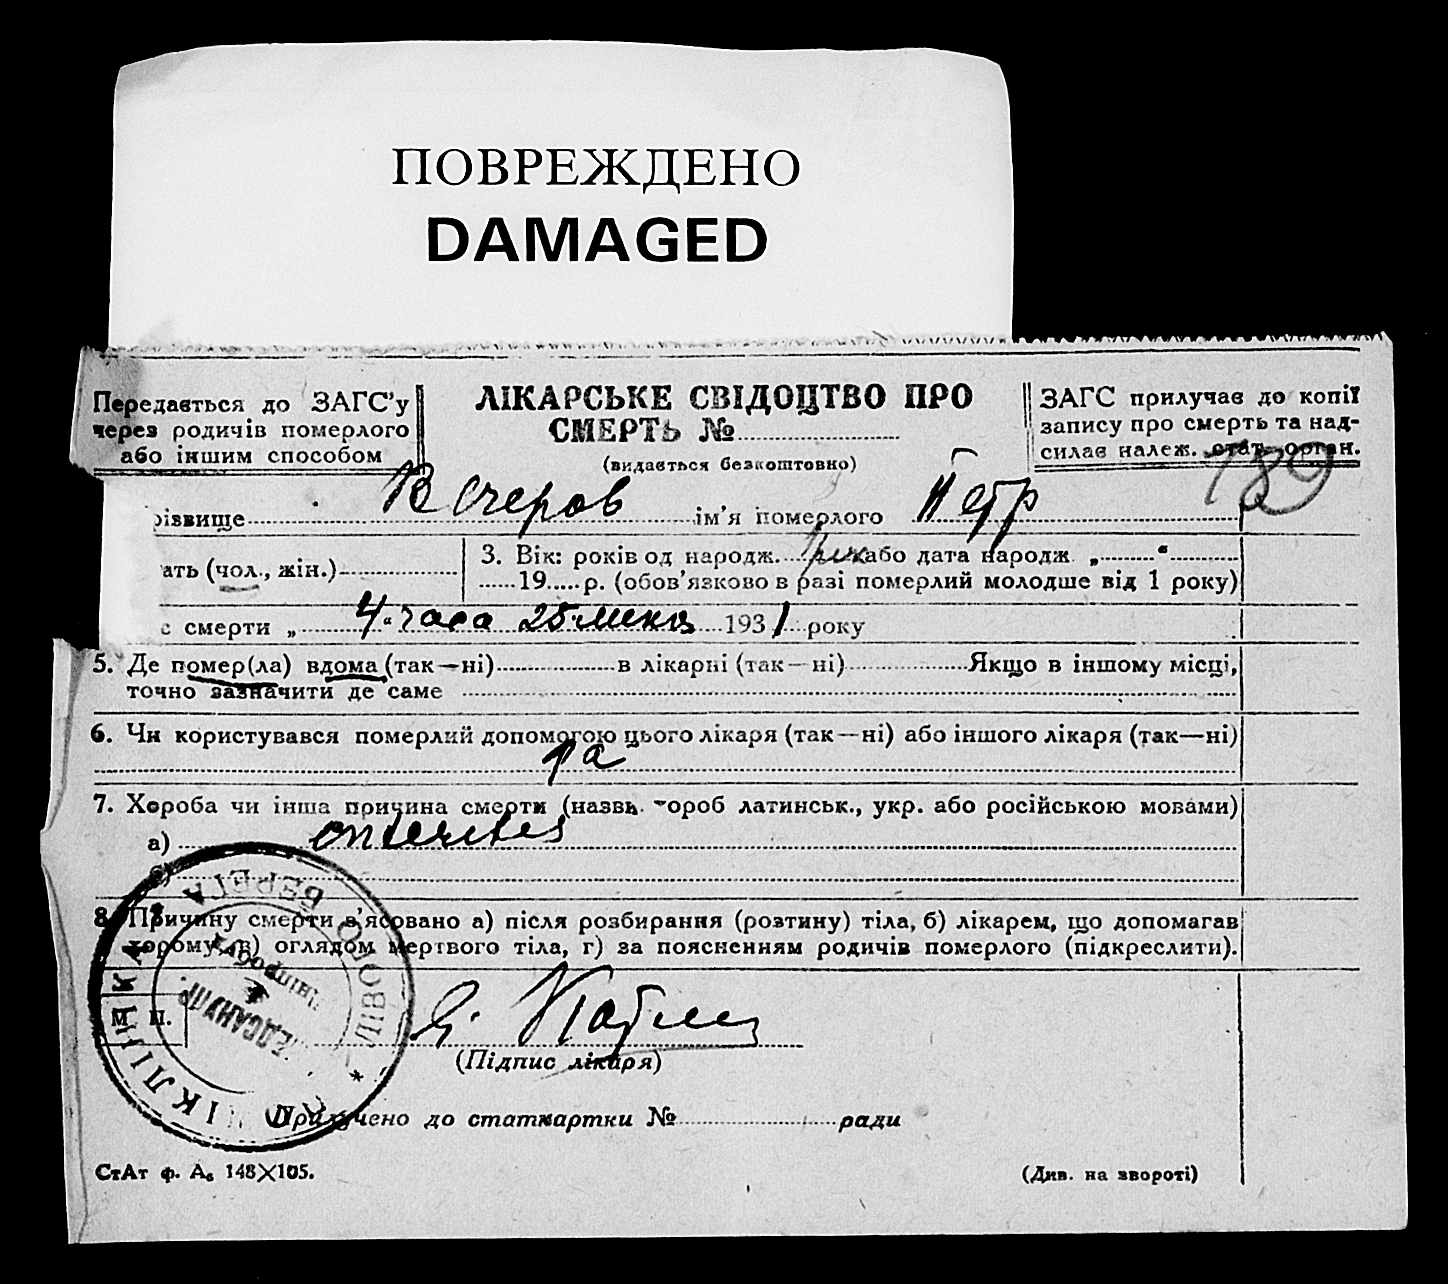 ПОВРЕЖДЕНО
DAMAGED
Передається до ЗАГС'у
через родичів померлого
або іншим способом
ЛІКАРСЬКЕ СВІДОЦТВО ПРО
СМЕРТЬ №
(видається безкоштовно)
ЗАГС прилучає до копії
запису про смерть та над-
силає належ. стат. орган.
189
різвище Вечеров ім'я померлого Петр
ать (чол., жін.)
3. Вік: років од народж. або дата народж. „ “
19 р. (обов'язково в разі померлий молодше від 1 року)
с смерти „ 4 “ часа 25 1931 року
5. Де помер(ла) вдома (так—ні) в лікарні (так—ні) Якщо в іншому місці,
точно зазначити де саме
6. Чи користувався померлий допомогою цього лікаря (так—ні) або іншого лікаря (так—ні)
да
7. Хороба чи інша причина смерти (назвь хороб латинськ., укр. або російською мовами)
а) enterites
б)
8. Причину смерти з'ясовано а) після розбирання (розтину) тіла, б) лікарем, що допомагав
хорому, в) оглядом мертвого тіла, г) за поясненням родичів померлого (підкреслити).
М. П.
(Підпис лікаря)
Прилучено до статкартки № ради
СтАт ф. А₆ 148×105.
(Див. на звороті)
ЛІВОГО БЕРЕГА